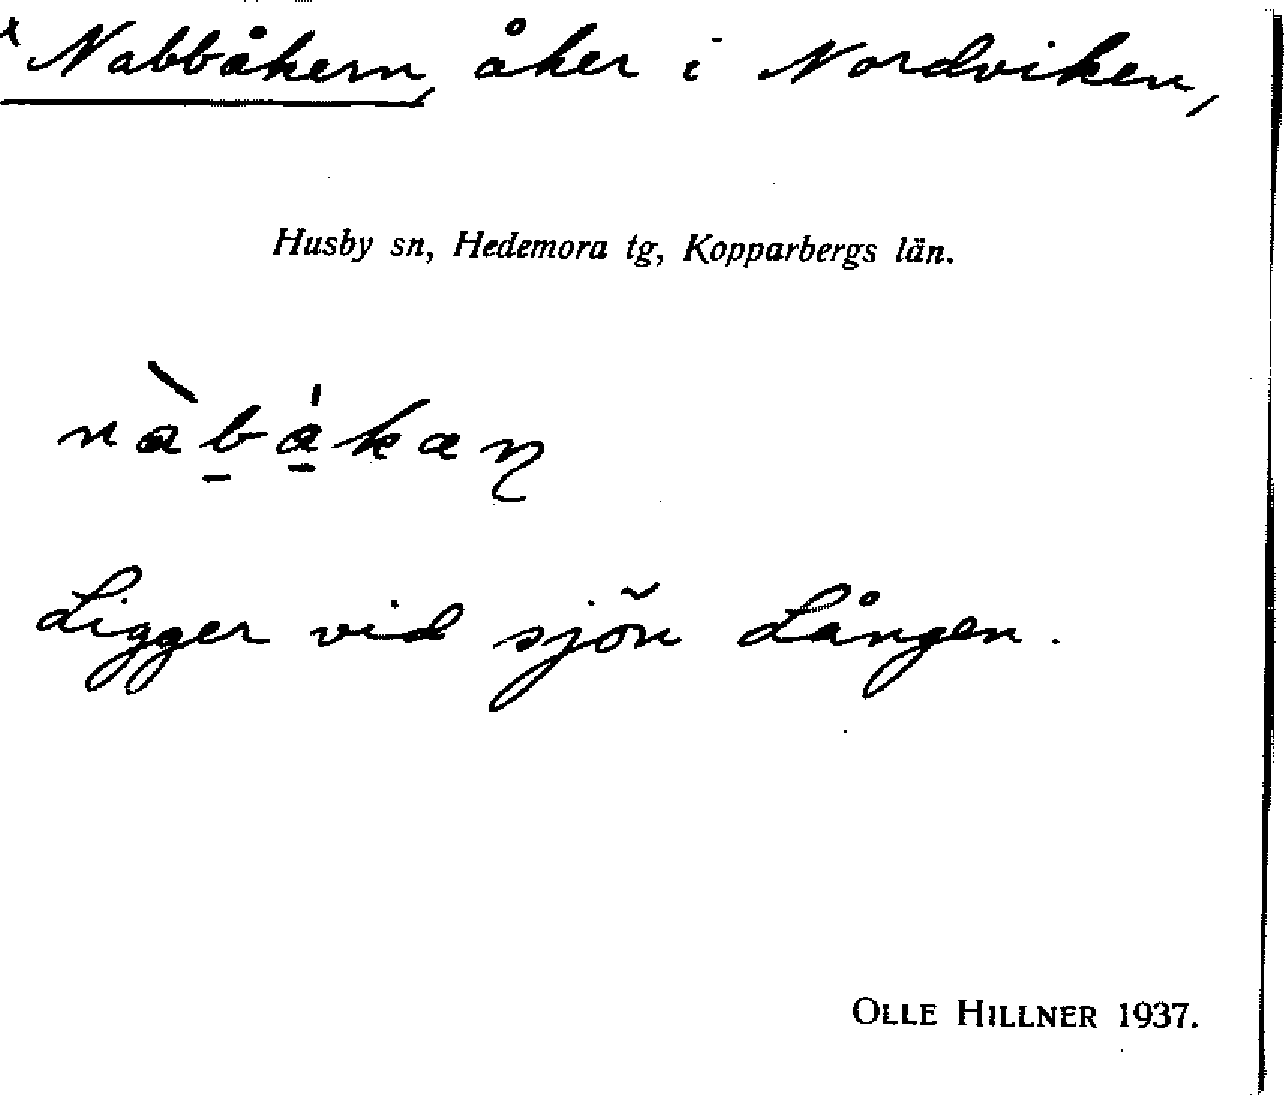 x Nabbåkern, åker i Nordviken,
Husby sn, Hedemora tg, Kopparbergs län.
Ligger vid sjön Lången.
OLLE HILLNER 1937.